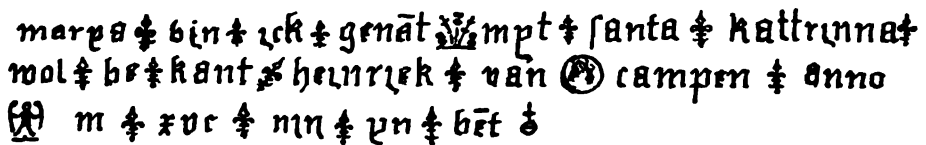 marya bin ick genāt myt santa kattrinna
wol be kant heinriek van campen anno
m xvc